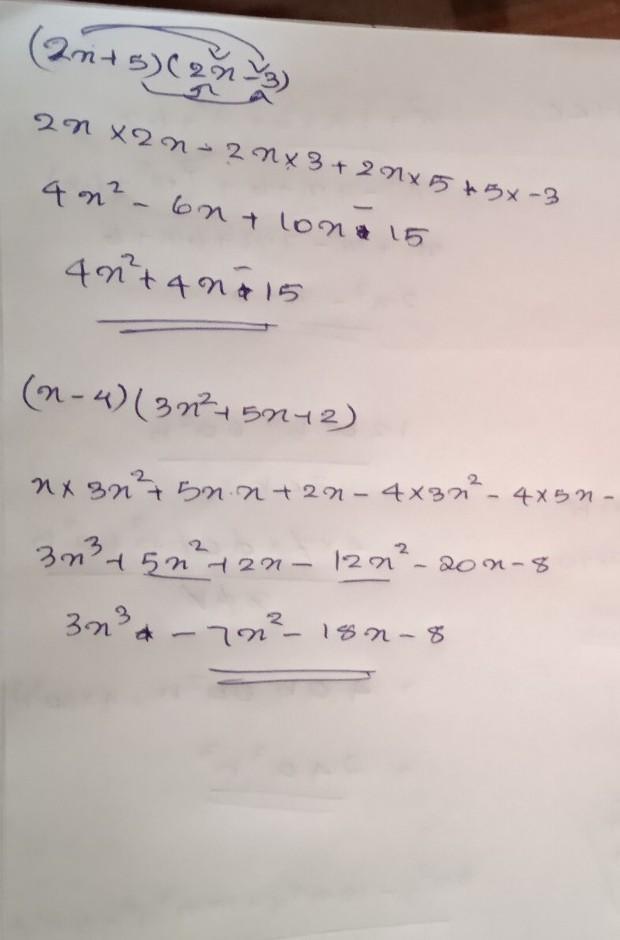 (2x+5)(2x-3)
2x × 2x - 2x × 3 + 2x × 5 + 5x - 3
4x² - 6x + 10x - 15
4x² + 4x - 15
(x-4)(3x²+5x+2)
x × 3x² + 5x.x + 2x - 4×3x² - 4×5x -
3x³ + 5x² + 2x - 12x² - 20x - 8
3x³ - 7x² - 18x - 8